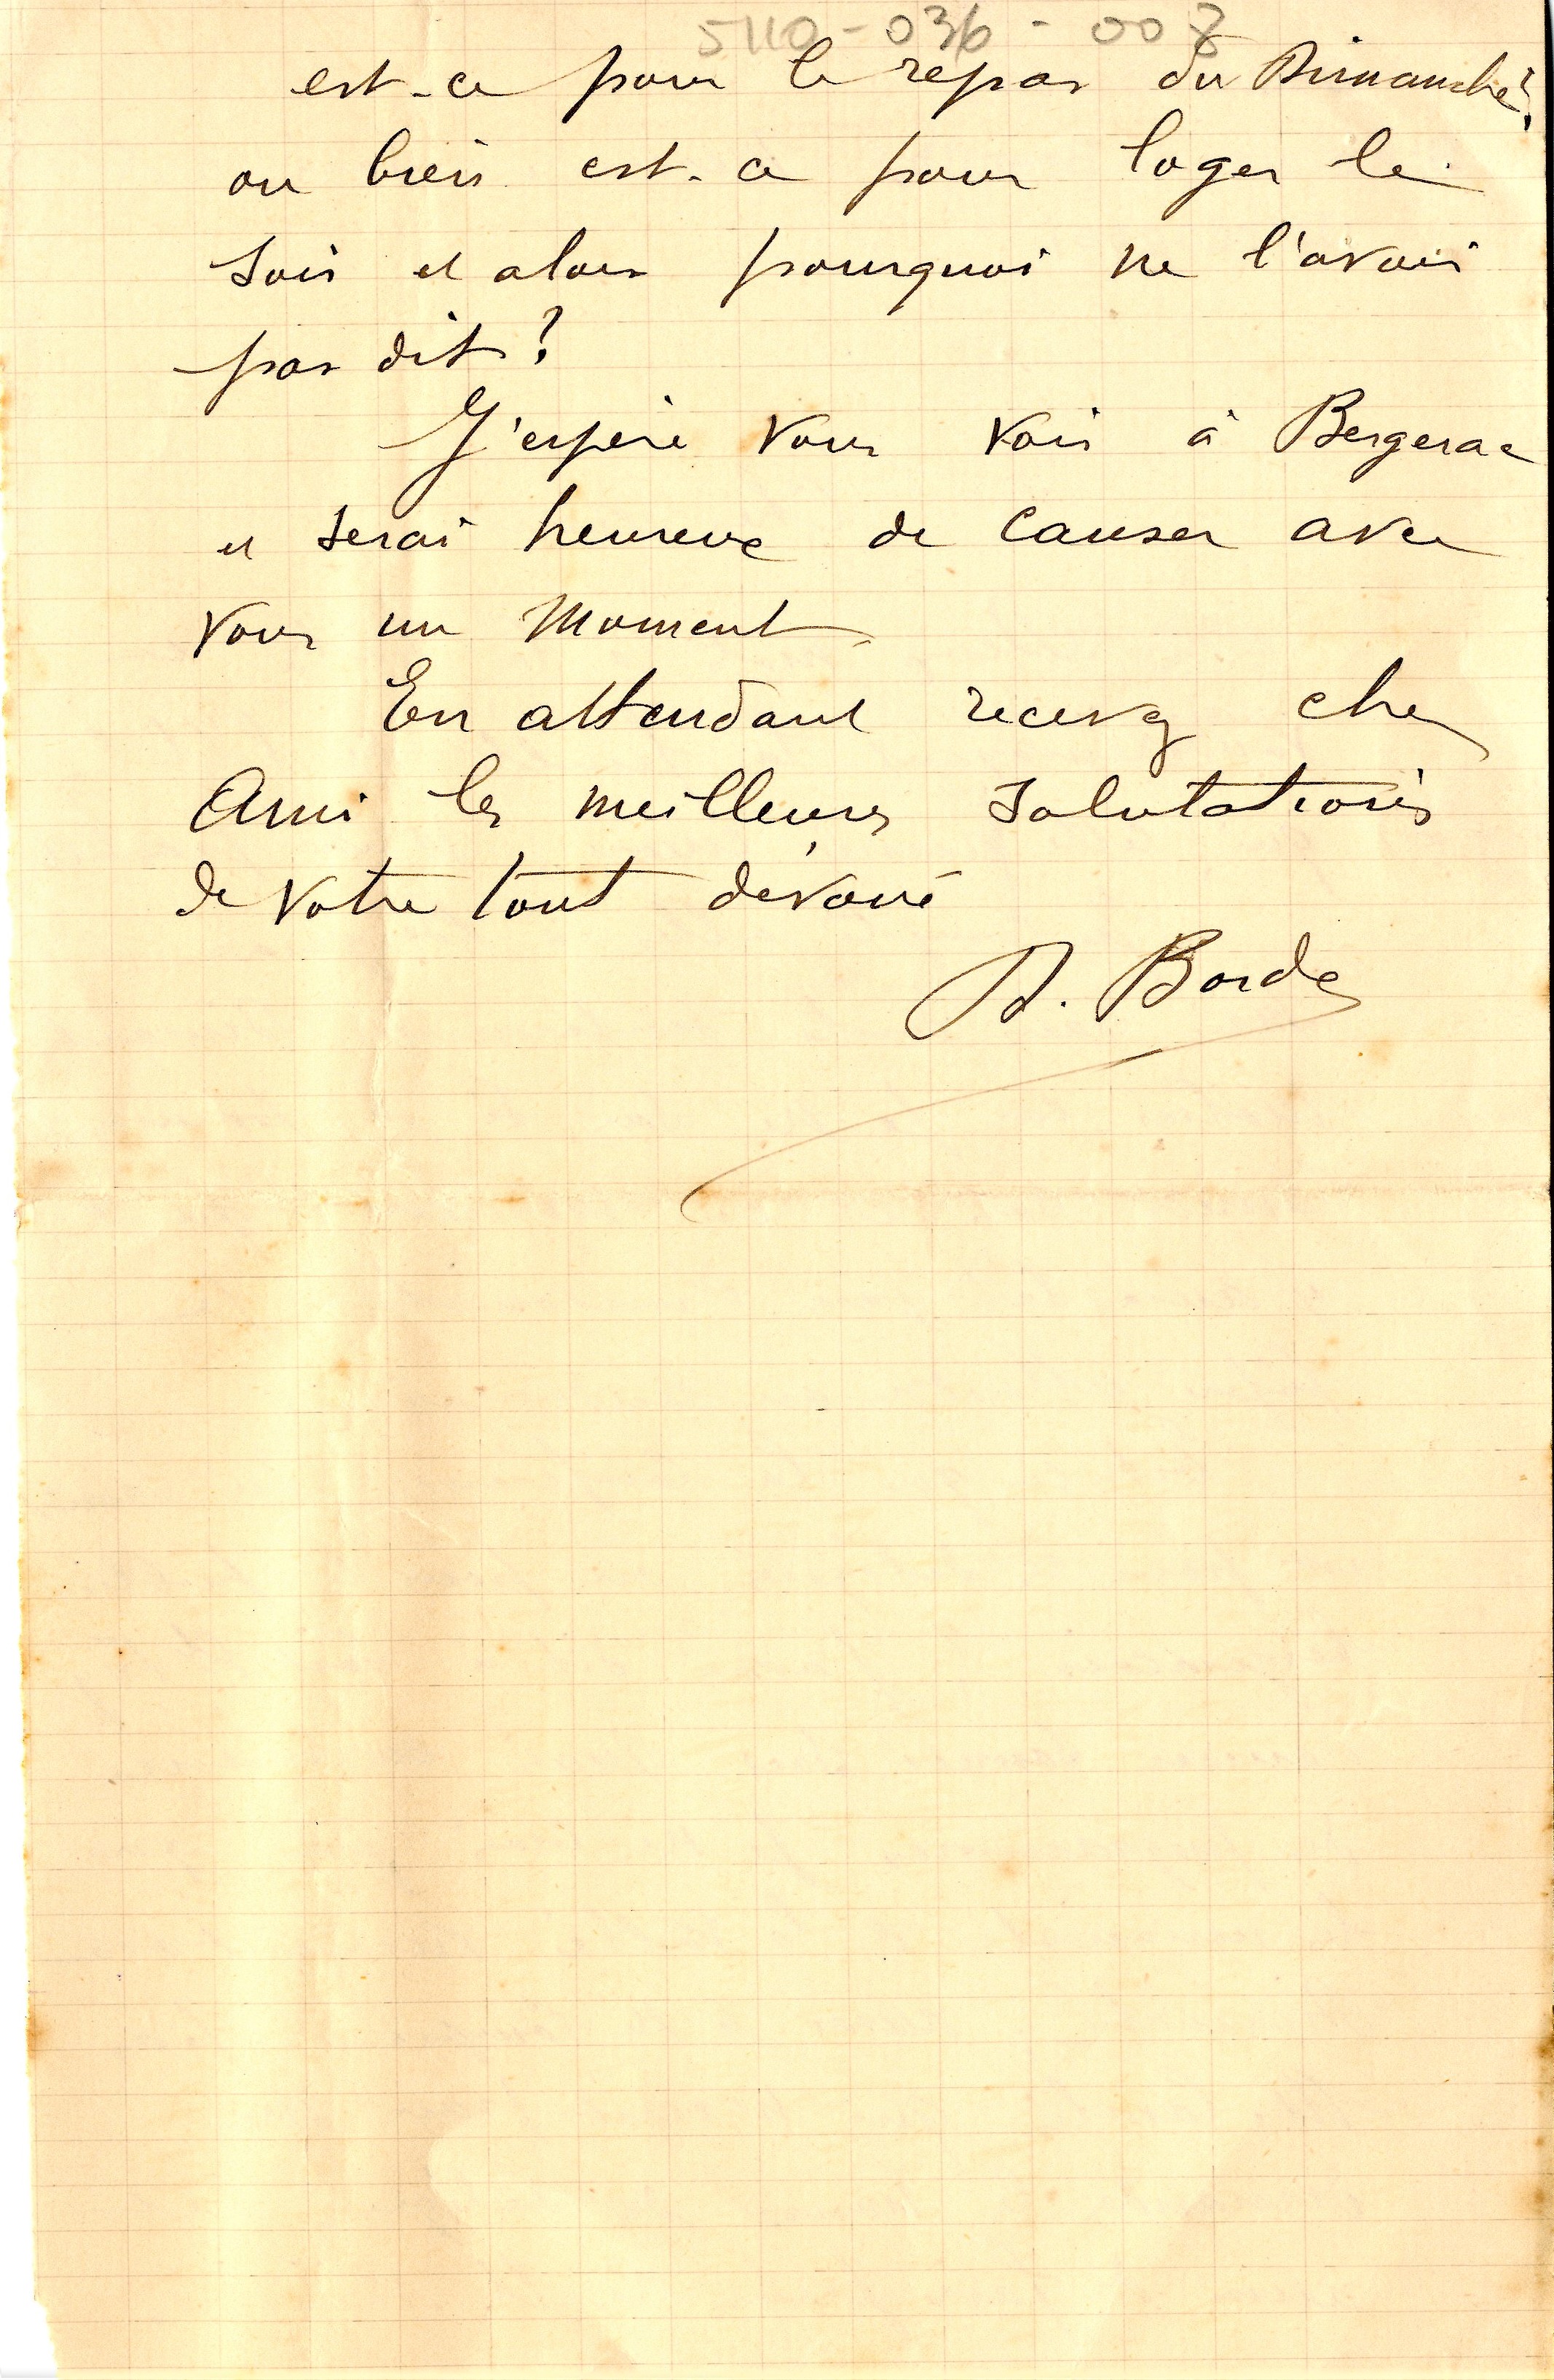 5110-036-008
est-ce pour le repas du Dimanche?
ou bien est-ce pour loger le
soir et alors pourquoi ne l'avoir
pas dit?
J'espère vous voir à Bergerac
et serai heureux de causer avec
vous un moment.
En attendant recevez cher
Ami les meilleures salutations
de votre tout dévoué
Borde